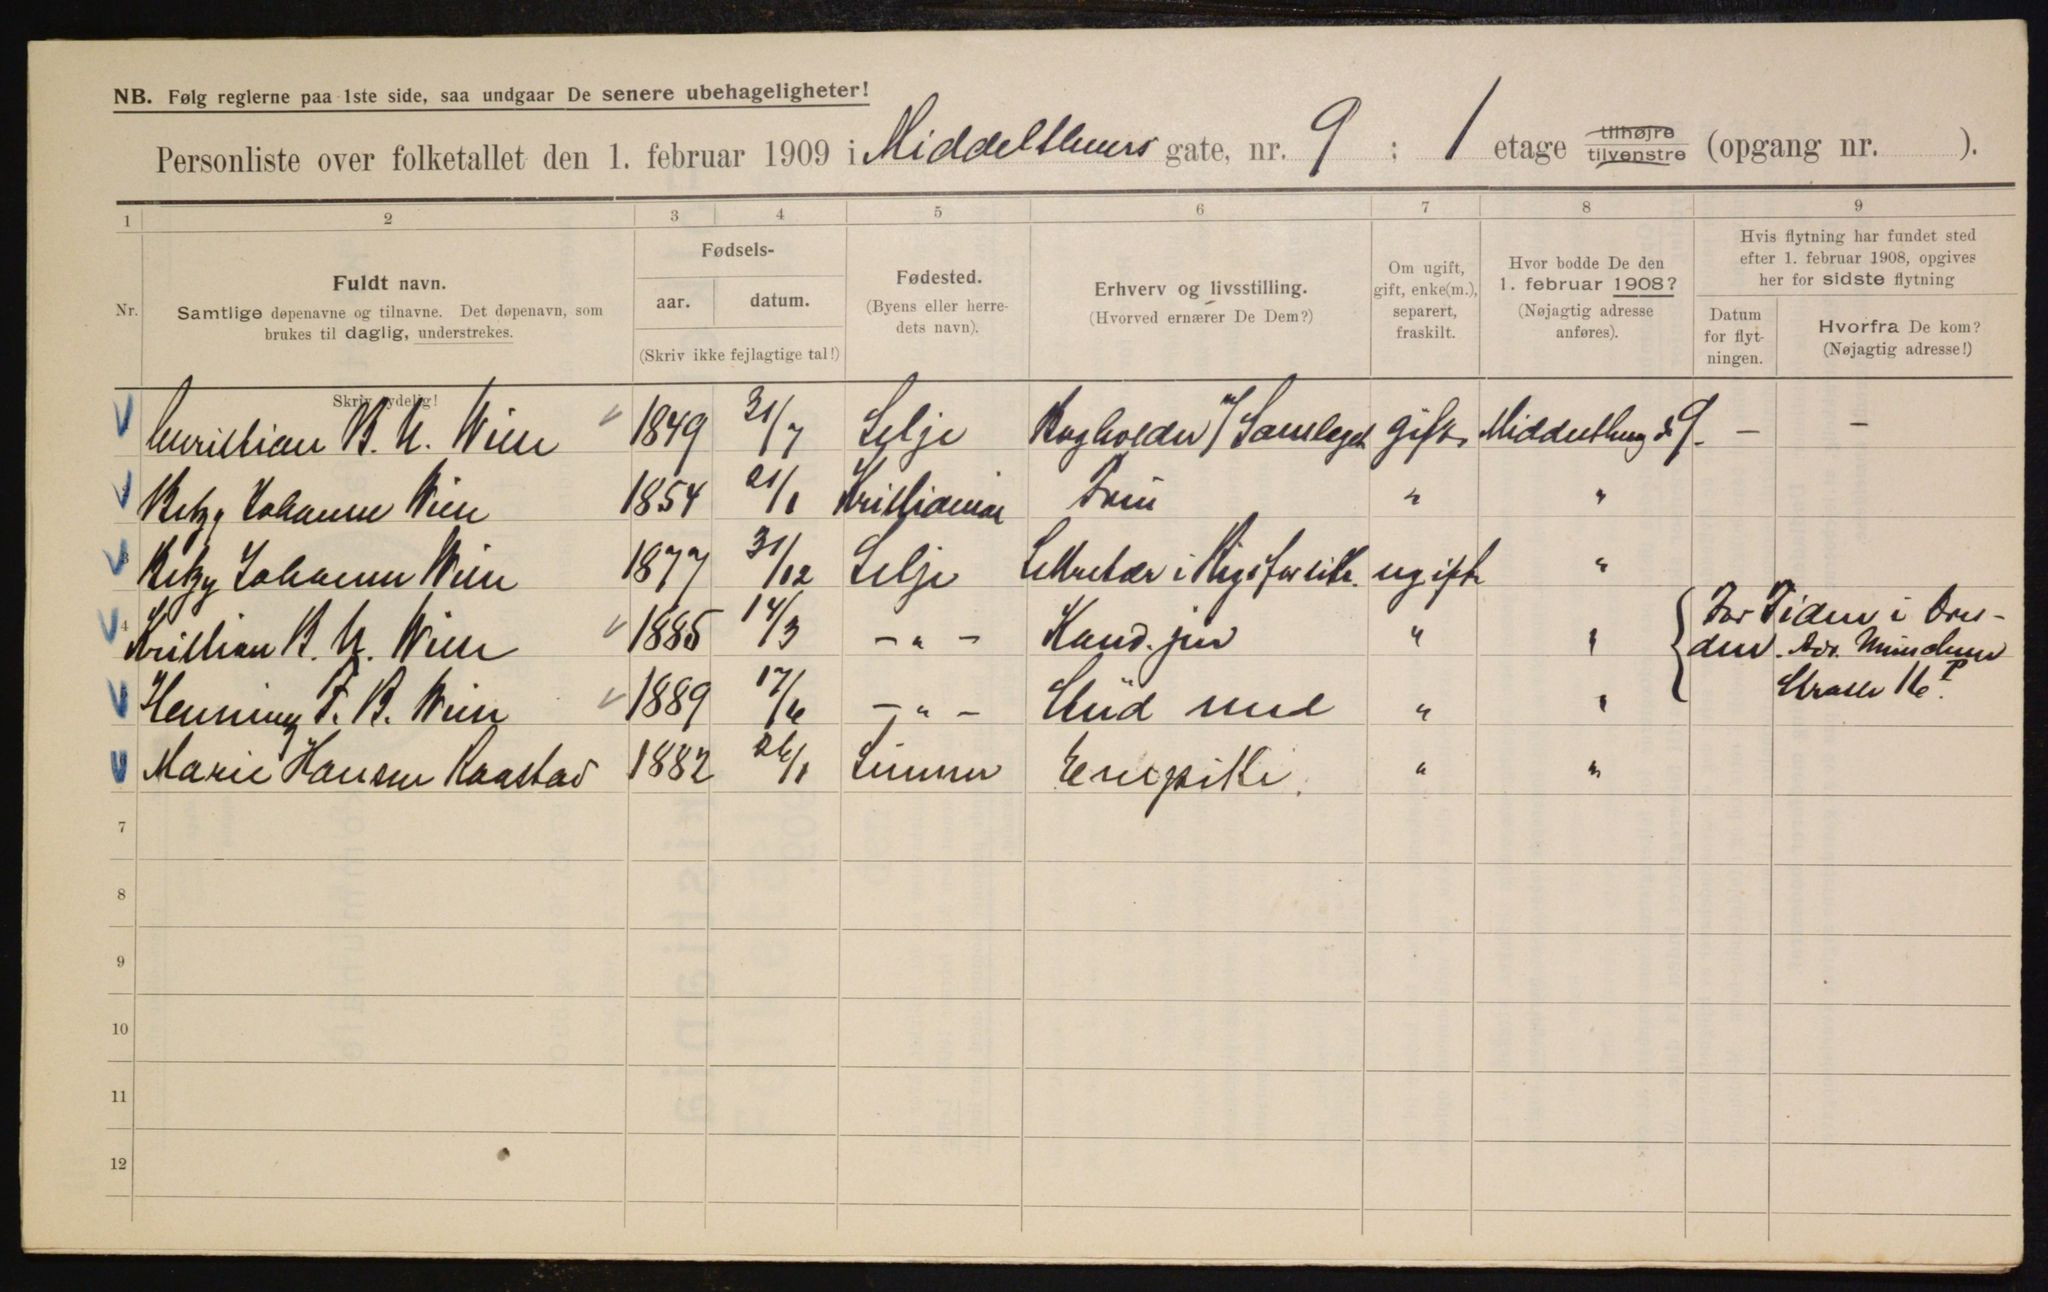 NB. Følg reglerne paa 1ste side, saa undgaar De senere ubehageligheter!
Personliste over folketallet den 1. februar 1909 i Middelthuns gate, nr. 9 : 1 etage tilhøjre tilvenstre (opgang nr. ).
1 2 3 4 5 6 7 8 9
Nr.
Fuldt navn.
Samtlige døpenavne og tilnavne. Det døpenavn, som
brukes til daglig, understrekes.
Skriv tydelig!
Fødsels-
aar. datum.
(Skriv ikke fejlagtige tal!)
Fødested.
(Byens eller herre-
dets navn).
Erhverv og livsstilling.
(Hvorved ernærer De Dem?)
Om ugift,
gift, enke(m.),
separert,
fraskilt.
Hvor bodde De den
1. februar 1908?
(Nøjagtig adresse
anføres).
Hvis flytning har fundet sted
efter 1. februar 1908, opgives
her for sidste flytning
Datum
for flyt-
ningen.
Hvorfra De kom?
(Nøjagtig adresse!)
Christian B. U. Wiese 1849 31/7 Selje Bogholder v/ Samlaget gift Middelthuns g 9. — —
Betzy Johanne Wiese 1854 21/1 Kristiania Frue " "
3 Betzy Johanne Wiese 1877 31/12 Selje Sekretær i Rigsforsikr. ugift "
4 Kristian B. U. Wiese 1885 14/3 — " — Kand. jur " " { For Tiden i Dres-
den. Adr. Münchner
Strasse 16 I.
Henning F. B. Wiese 1889 17/6 — " — Stud med " "
Marie Hansen Raastad 1882 26/1 Lunner Enepike. " "
7
8
9
10
11
12